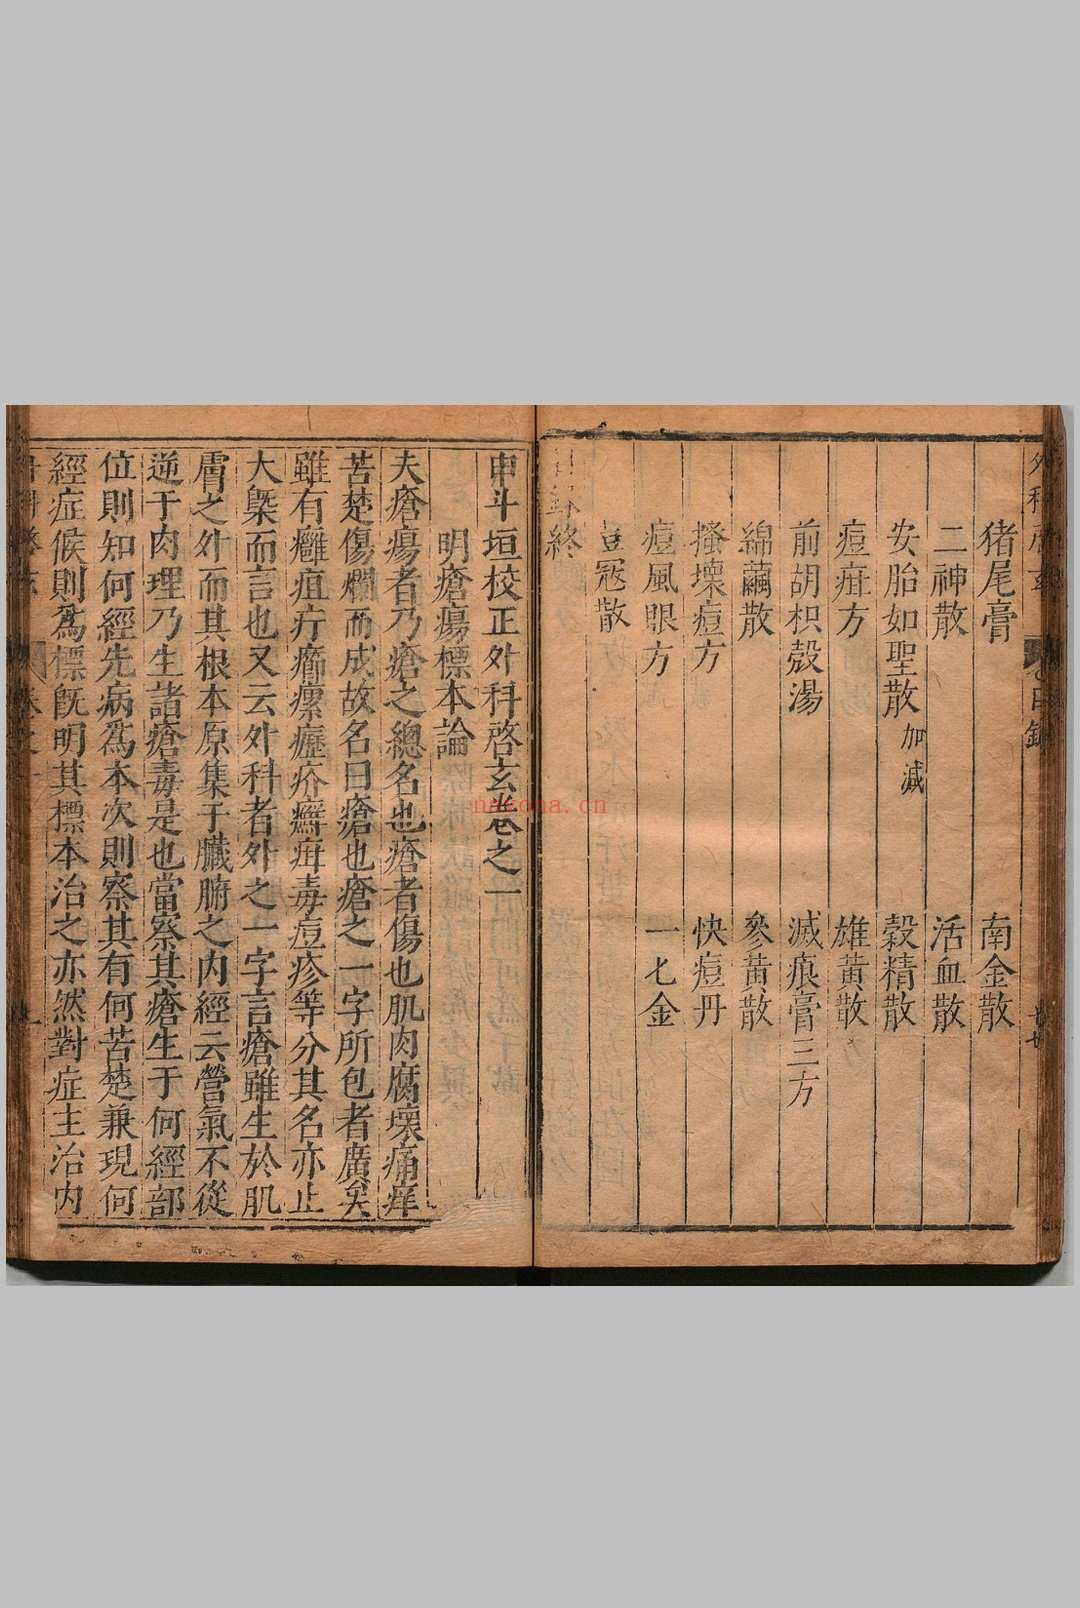 猪尾膏 南金散
二神散 活血散
安胎如聖散加減 穀精散
痘疳方 雄黃散
前胡枳殼湯 滅痕膏三方
綿繭散 參黃散
搔壞痘方 快痘丹
痘風眼方 一七金
豆冦散
終
申斗垣校正外科啓玄卷之一
明瘡瘍標本論
夫瘡瘍者乃瘡之總名也瘡者傷也肌肉腐壞痛痒
苦楚傷爛而成故名曰瘡也瘡之一字所包者廣矣
雖有癰疽疔癤瘰癧疥癬疳毒痘疹等分其名亦止
大槩而言也又云外科者外之一字言瘡雖生於肌
膚之外而其根本原集于臟腑之內經云營氣不從
逆于肉理乃生諸瘡毒是也當察其瘡生于何經部
位則知何經先病爲本次則察其有何苦楚兼現何
經症候則爲標旣明其標本治之亦然對症主治內
nacona.cn